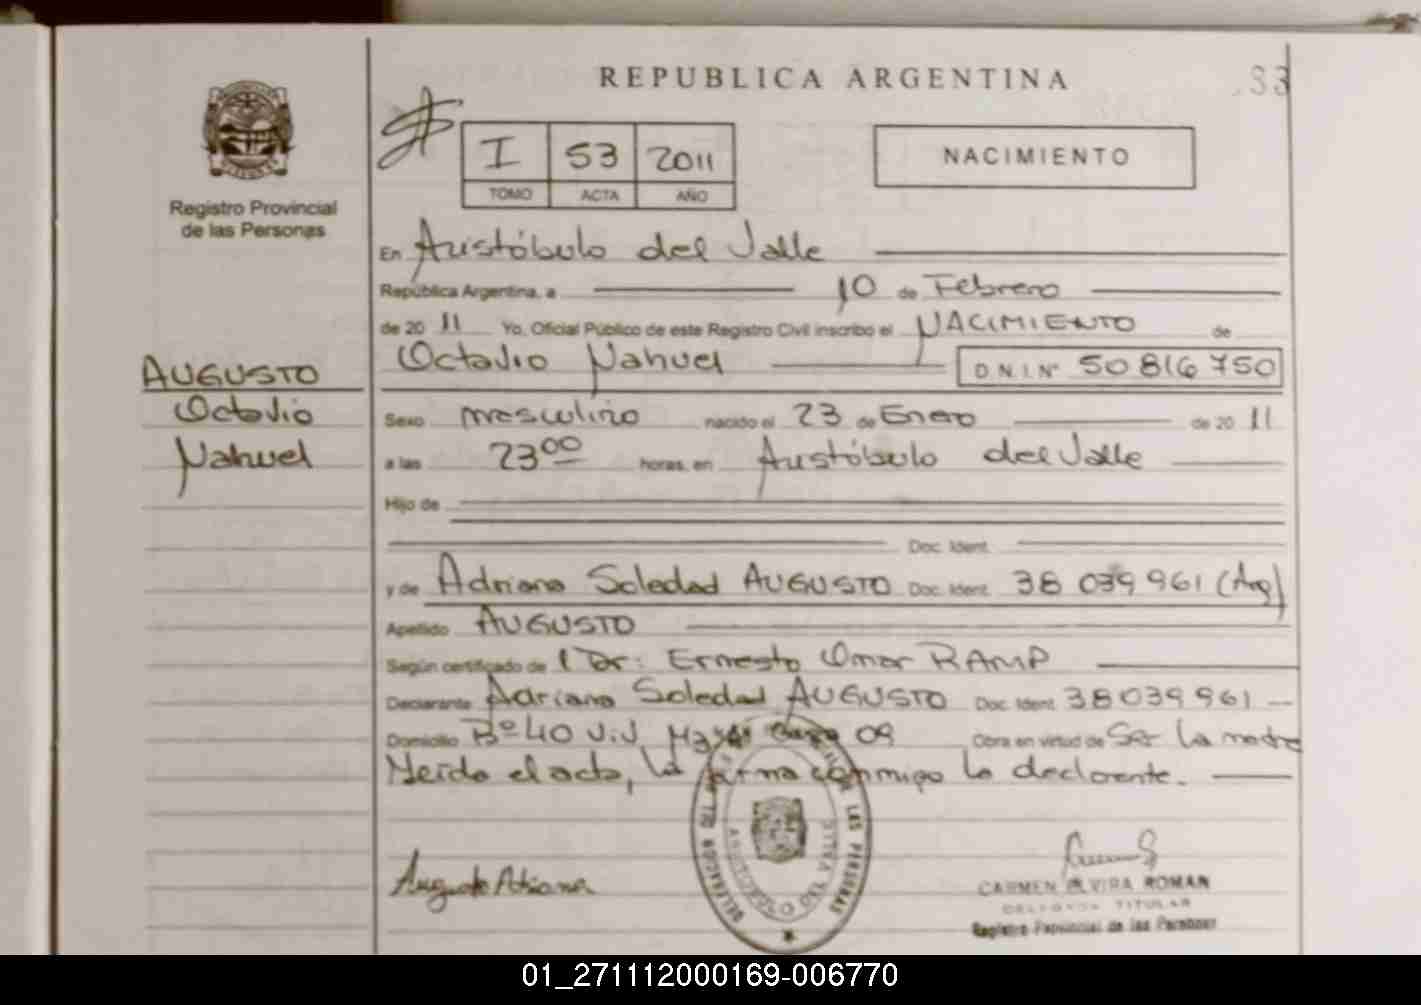 REPUBLICA ARGENTINA
33
I 53 2011
TOMO ACTA AÑO
NACIMIENTO
Registro Provincial
de las Personas
En Aristóbulo del Valle
República Argentina, a 10 de Febrero
de 20 11 Yo, Oficial Público de este Registro Civil inscribo el NACIMIENTO de
Octavio Nahuel D.N.I. Nº 50 816 750
AUGUSTO
Octavio
Nahuel
Sexo masculino nacido el 23 de Enero de 20 11
a las 23 00 horas, en Aristóbulo del Valle
Hijo de
Doc. Ident.
y de Adriana Soledad AUGUSTO Doc. Ident. 38 039 961 (Arg)
Apellido AUGUSTO
Según certificado de Dr: Ernesto Omar RAMP
Declarante Adriana Soledad AUGUSTO Doc. Ident. 38039961
Domicilio Bº 40 Viv Mz Casa 09 Obra en virtud de Ser la madre
Leída el acta, la firma conmigo la declarante.
Augusto Adriana
DELEGACION
DE LAS PERSONAS
ARISTOBULO DEL VALLE
CARMEN ELVIRA ROMAN
DELEGADA TITULAR
Registro Provincial de las Personas
01_271112000169-006770